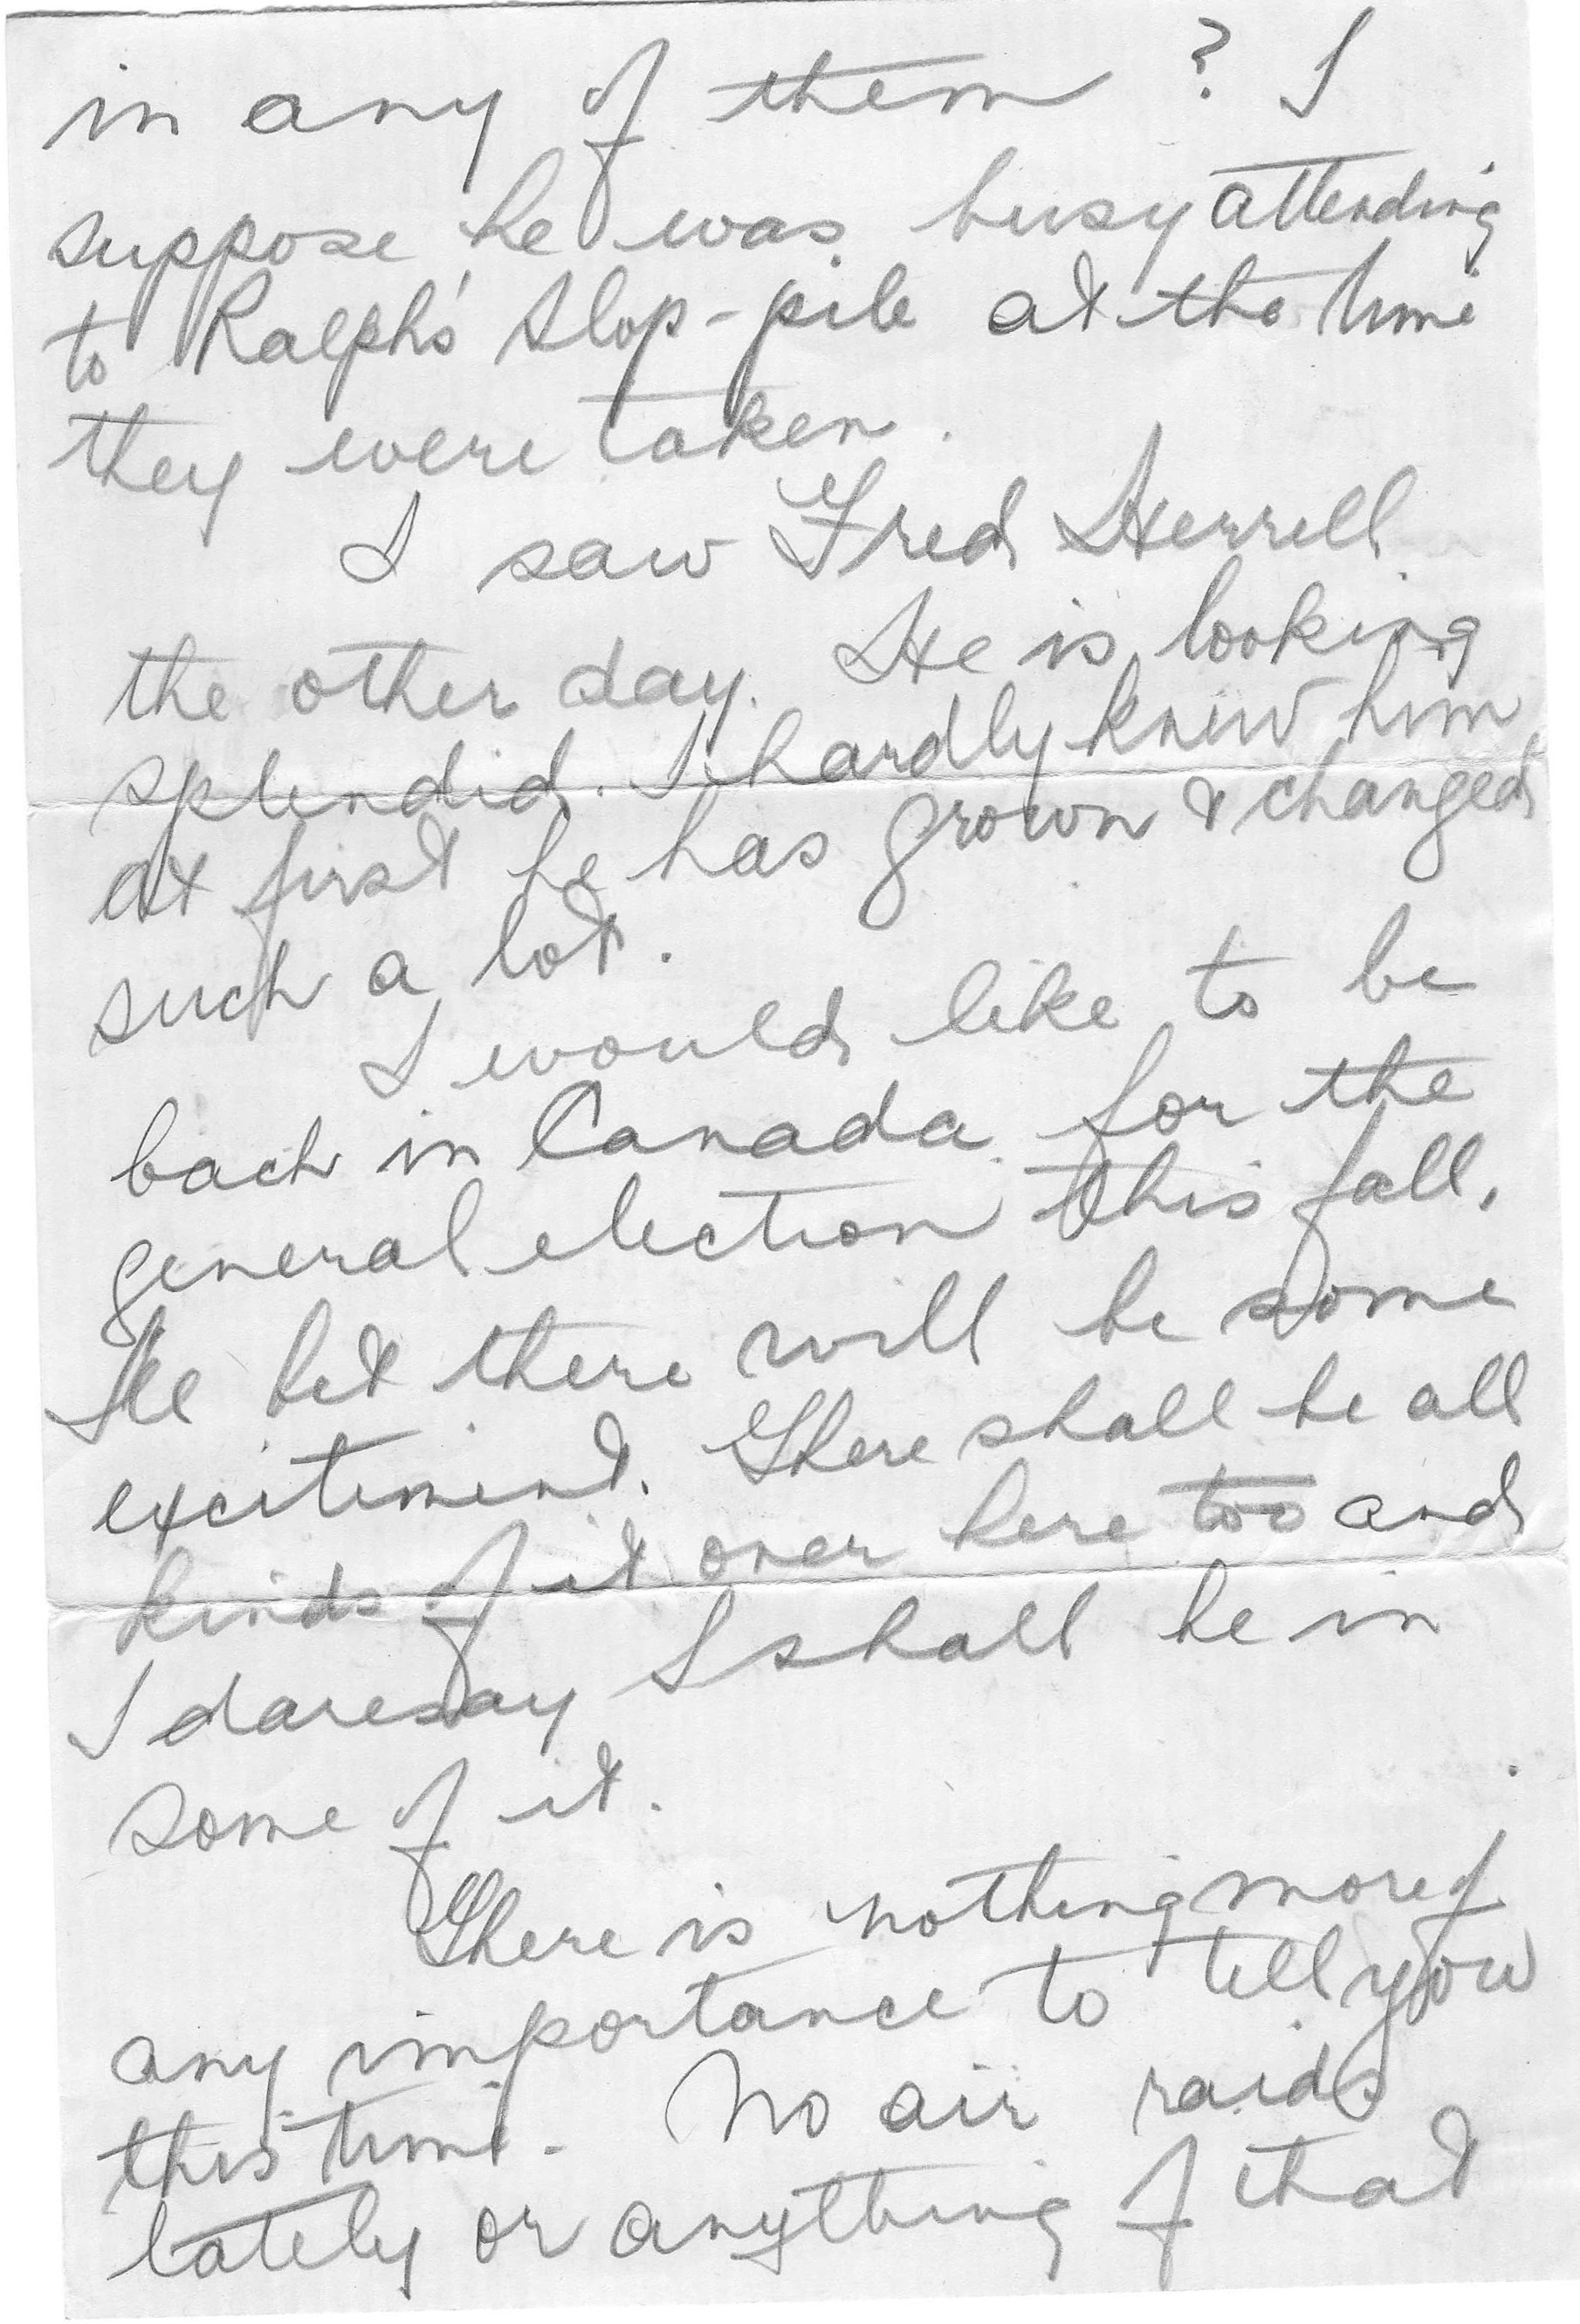 in any of them? I
suppose he was busy attending
to Ralph's slop-pile at the time
they were taken.
I saw Fred Herrell
the other day. He is looking
splendid. I hardly knew him
at first he has grown & changed
such a lot.
I would like to be
back in Canada for the
general election this fall.
I'll bet there will be some
excitement. There shall be all
kinds of it over here too and
I daresay I shall be in
some of it.
There is nothing more of
any importance to tell you
this time. No air raids
lately or anything of that